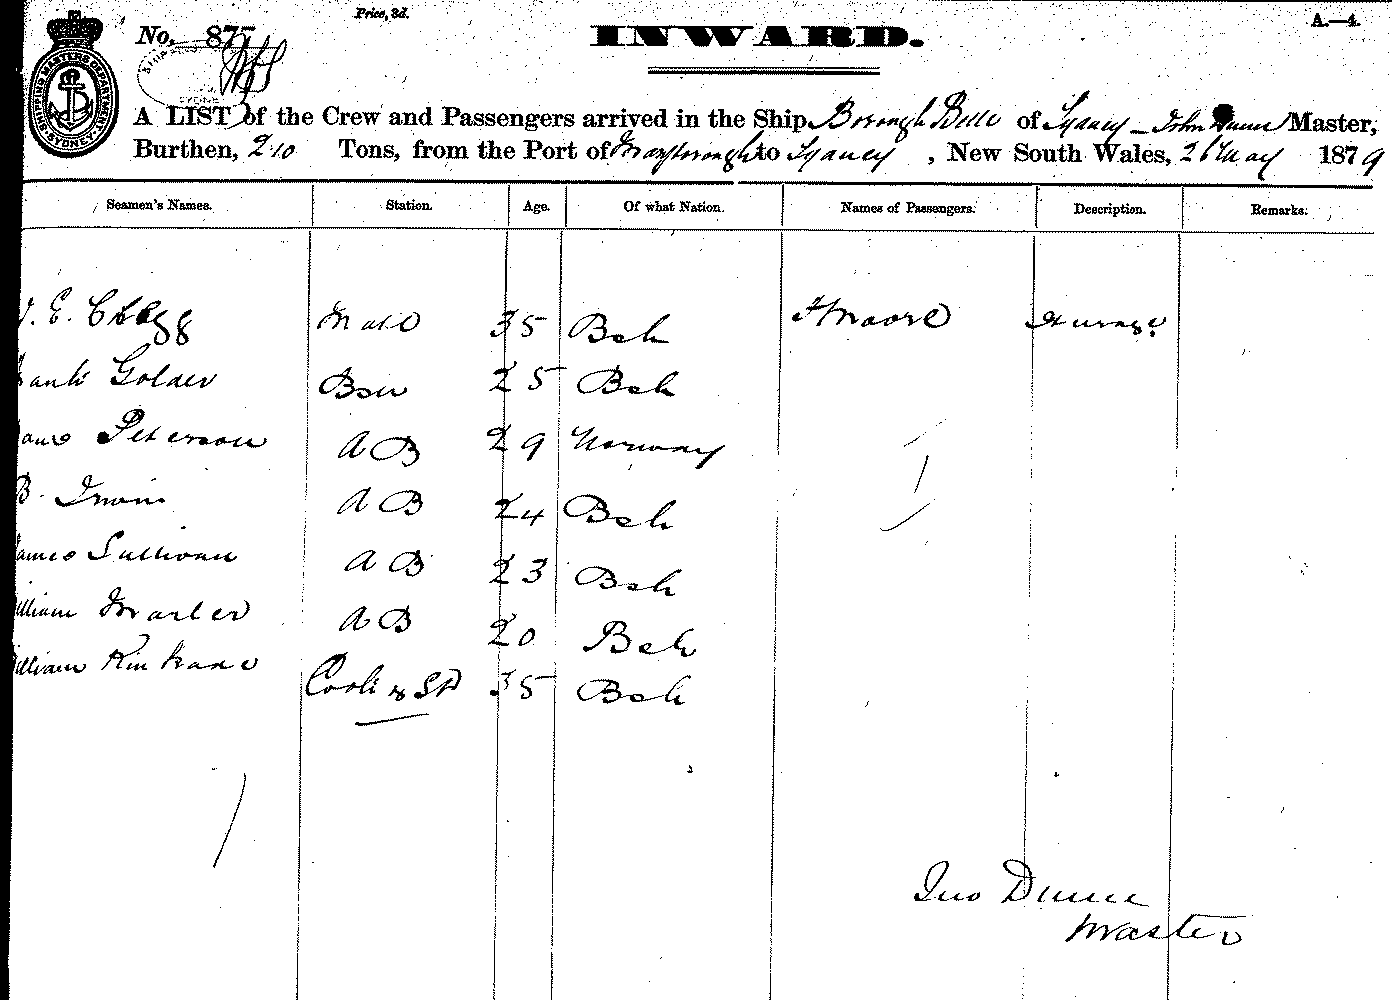 Price, 3d.
A.—4.
No. 877
INWARD.
SHIPPING MASTERS DEPARTMENT
SYDNEY
A LIST of the Crew and Passengers arrived in the Ship Borough Belle of Sydney - John Dunn Master,
Burthen, 210 Tons, from the Port of Maryborough to Sydney, New South Wales, 26 May 1879
Seamen's Names. Station. Age. Of what Nation. Names of Passengers. Description. Remarks.
E. Clegg Mate 35 Bsh Moore
Golder Bsn 25 Bsh
Peterson AB 29 Norway
B. Irwin AB 24 Bsh
James Sullivan AB 23 Bsh
William AB 20 Bsh
William Cook & Std 35 Bsh
Jno Dunn
Master